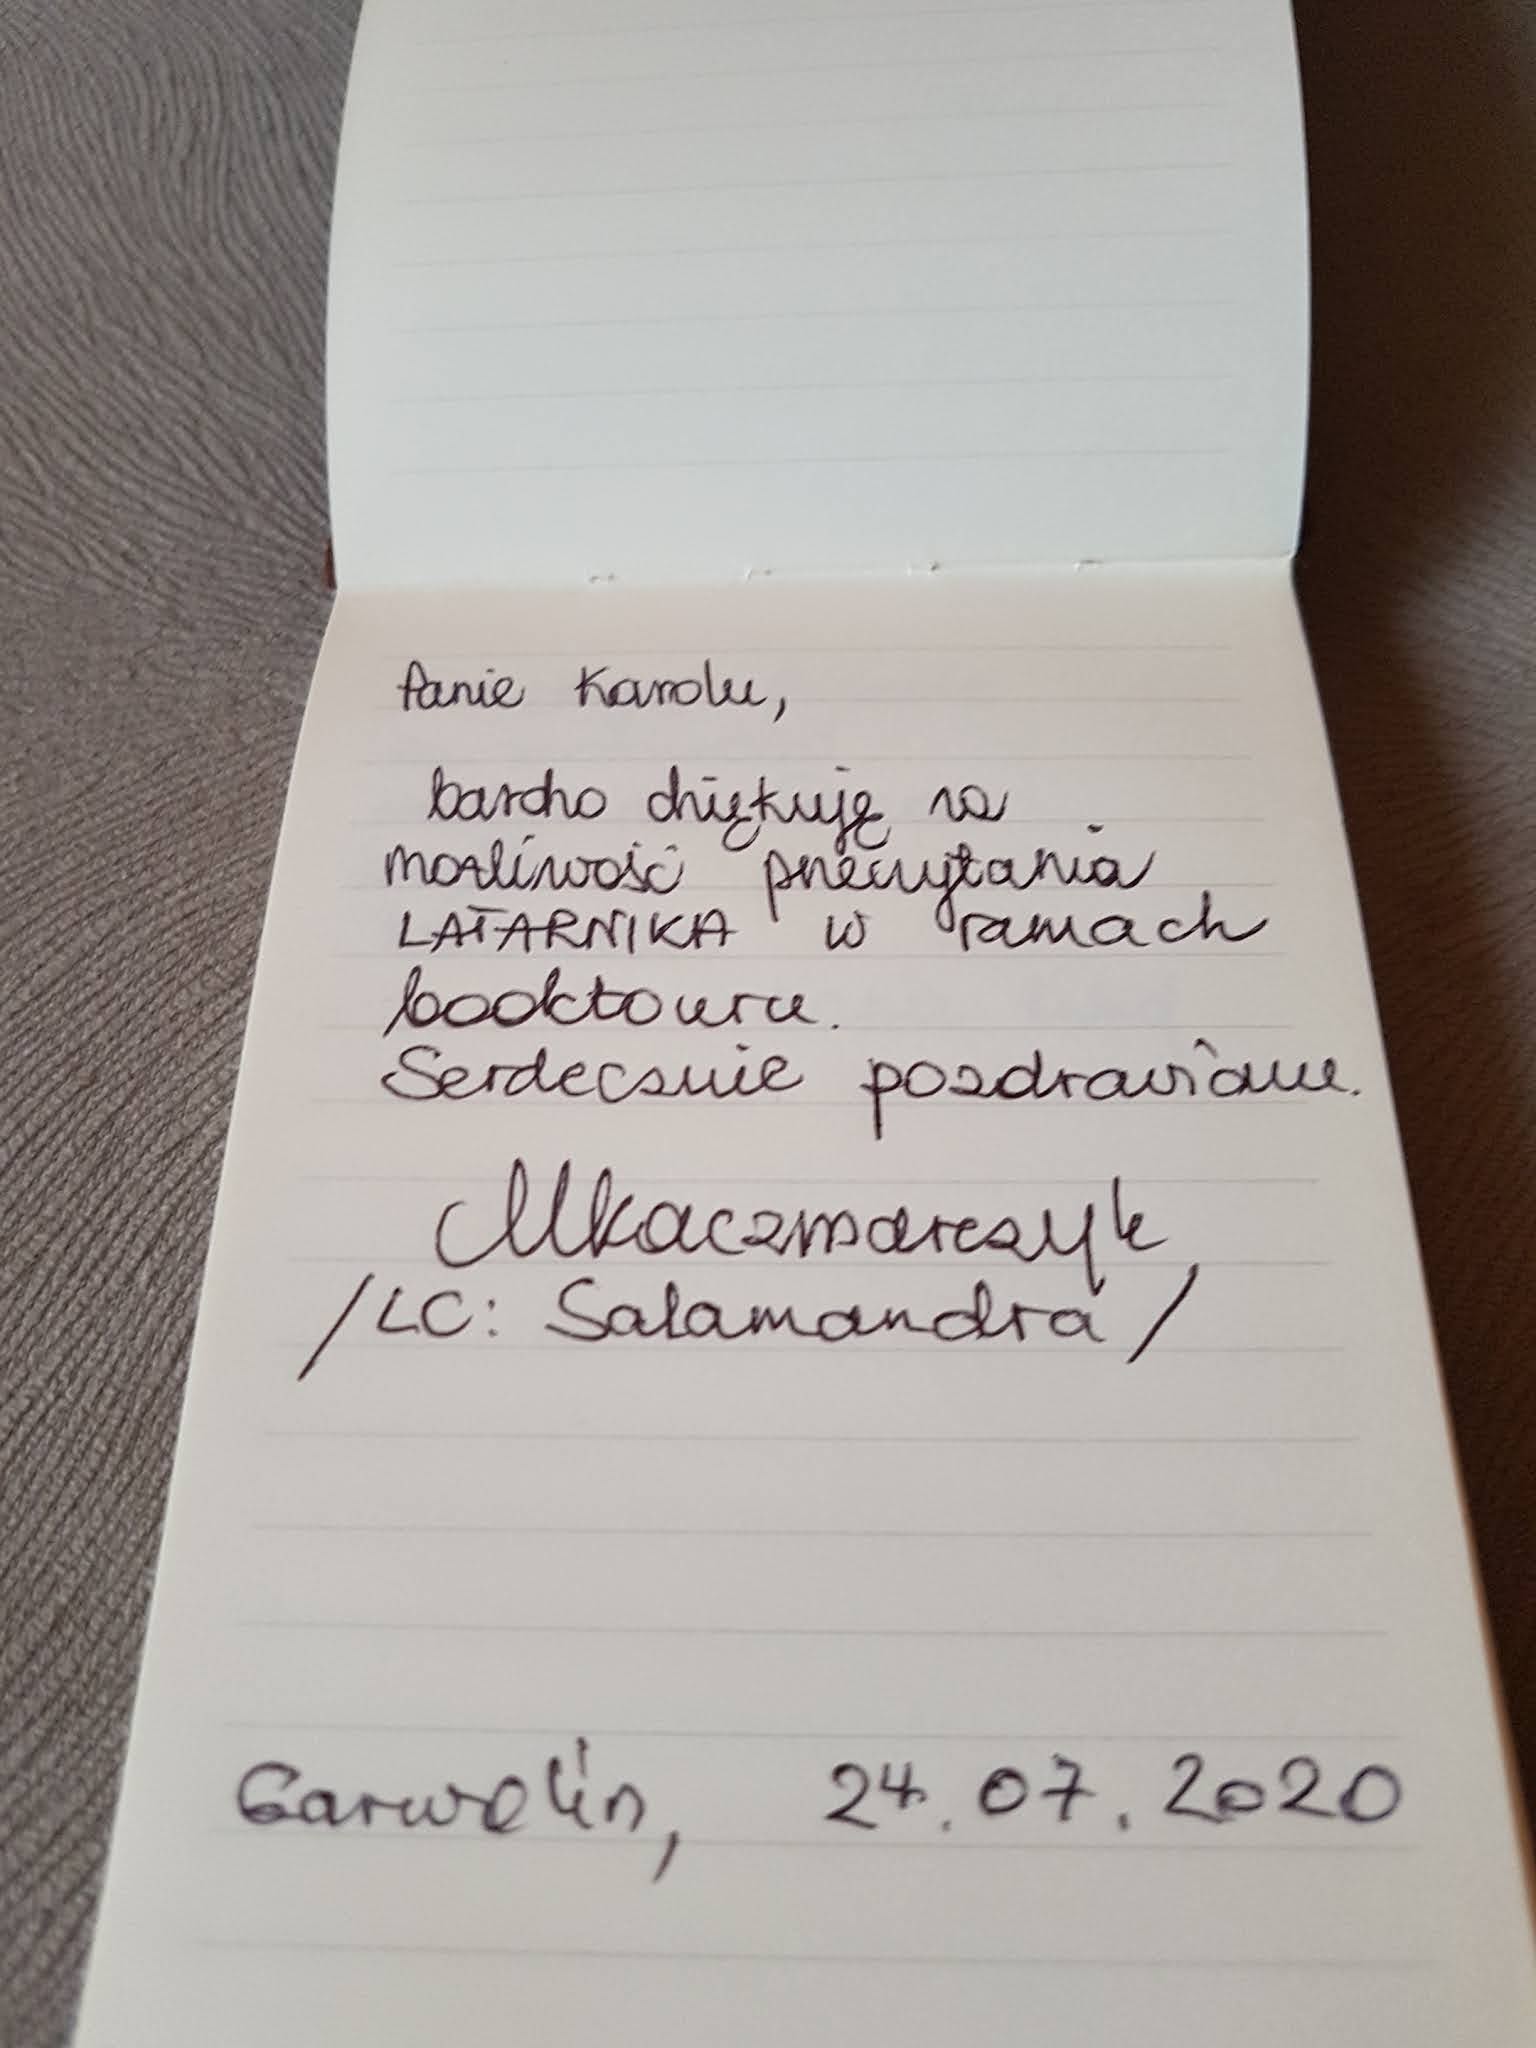 Panie Karolu,
bardzo dziękuję za
możliwość przeczytania
LATARNIKA w ramach
booktouru.
Serdecznie pozdrawiam.
MKaczmarczyk
/LC: Salamandra/
Garwolin, 24.07.2020